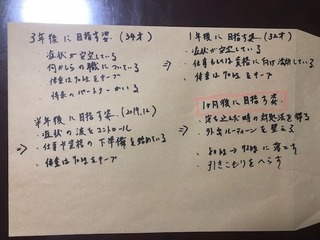 3年後に目指す姿.(34才)
症状が安定している
何かしらの職についている
体重は70kgをキープ
将来のパートナーがいる
1年後に目指す姿.(32才)
・症状が安定している
⇒ ・仕事もしくは資格に向け活動している
・体重は70kgをキープ
半年後に目指す姿.(2019.12)
・症状の波をコントロール
⇒ ・仕事や資格の下準備を始めている
・体重は70kgをキープ
1ヶ月後に目指す姿.
・落ち込んだ時の対処法を探る
⇒ ・外出ルーティーンを整える
・に落とす
・引きこもりをへらす